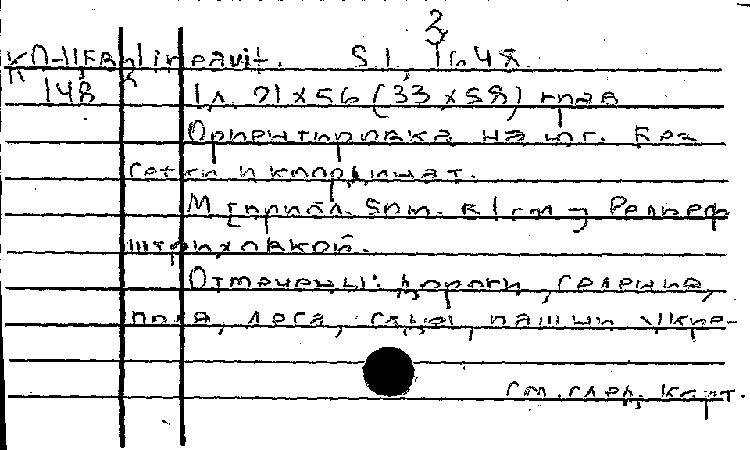 3
lineavit. S.l, 1648
К 148 1 л. 21 x 56 (33 x 58) грав
Ориентировка на юг. Без
сетки и координат.
М [прибл. 5вт. в 1 см] Рельеф
штриховкой.
Отмечены: дороги, селения,
поля, леса, сады, пашни укре-
см. след. карт.